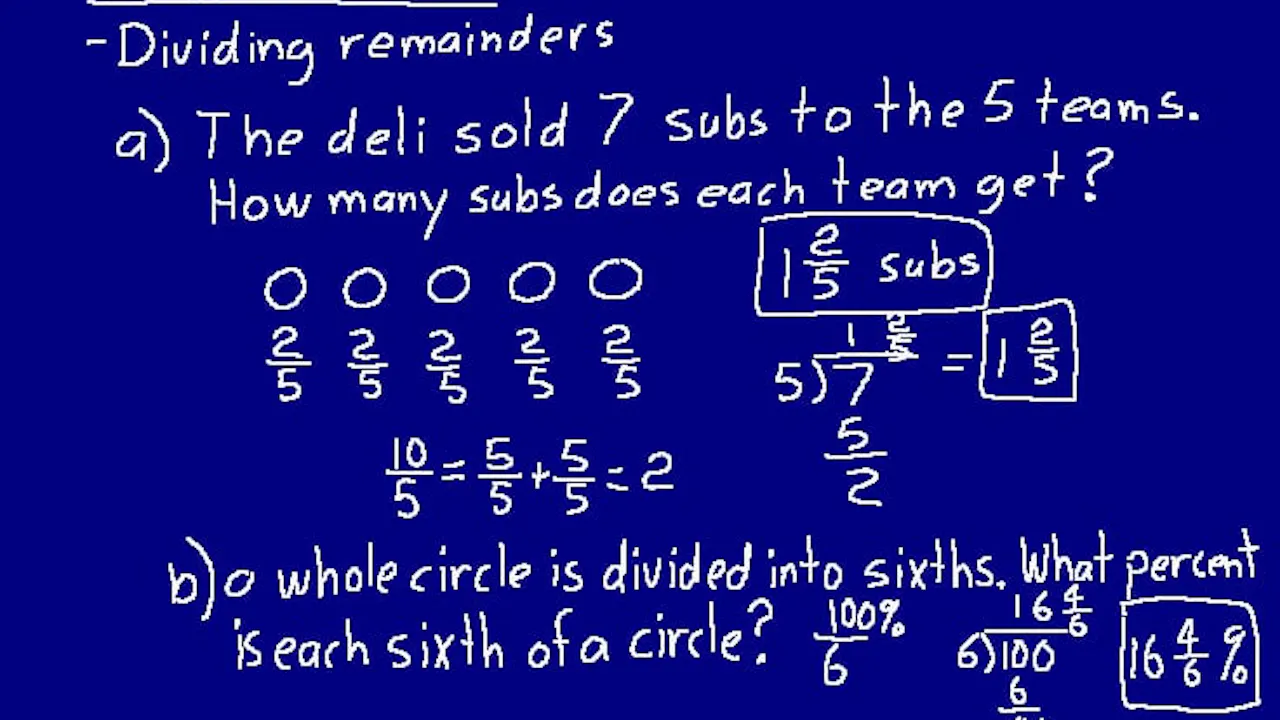 - Dividing remainders
a) The deli sold 7 subs to the 5 teams.
How many subs does each team get?
1 2/5 subs
2/5 2/5 2/5 2/5 2/5
1 2/5
5)7 = 1 2/5
5
2
10/5 = 5/5 + 5/5 = 2
b) a whole circle is divided into sixths. What percent
is each sixth of a circle? 100%/6
16 4/6
6)100 16 4/6 %
6